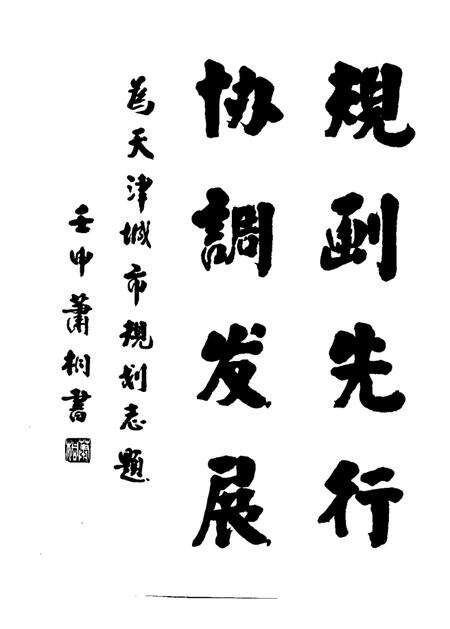 規劃先行
协調发展
為天津城市規划志題
壬申蕭桐書